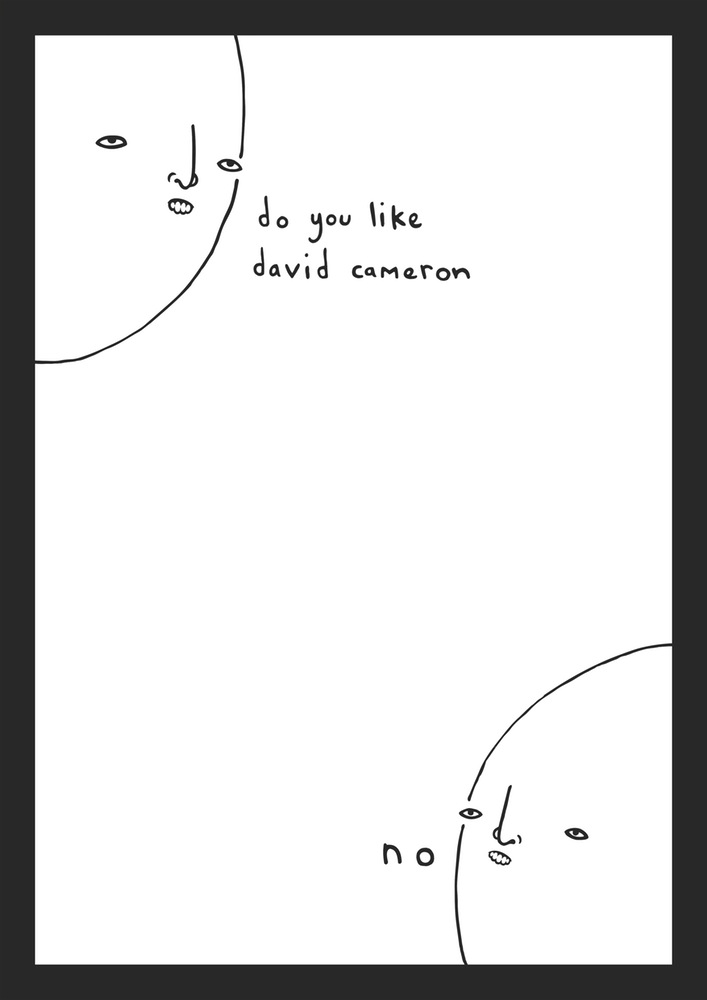 do you like
david cameron
no